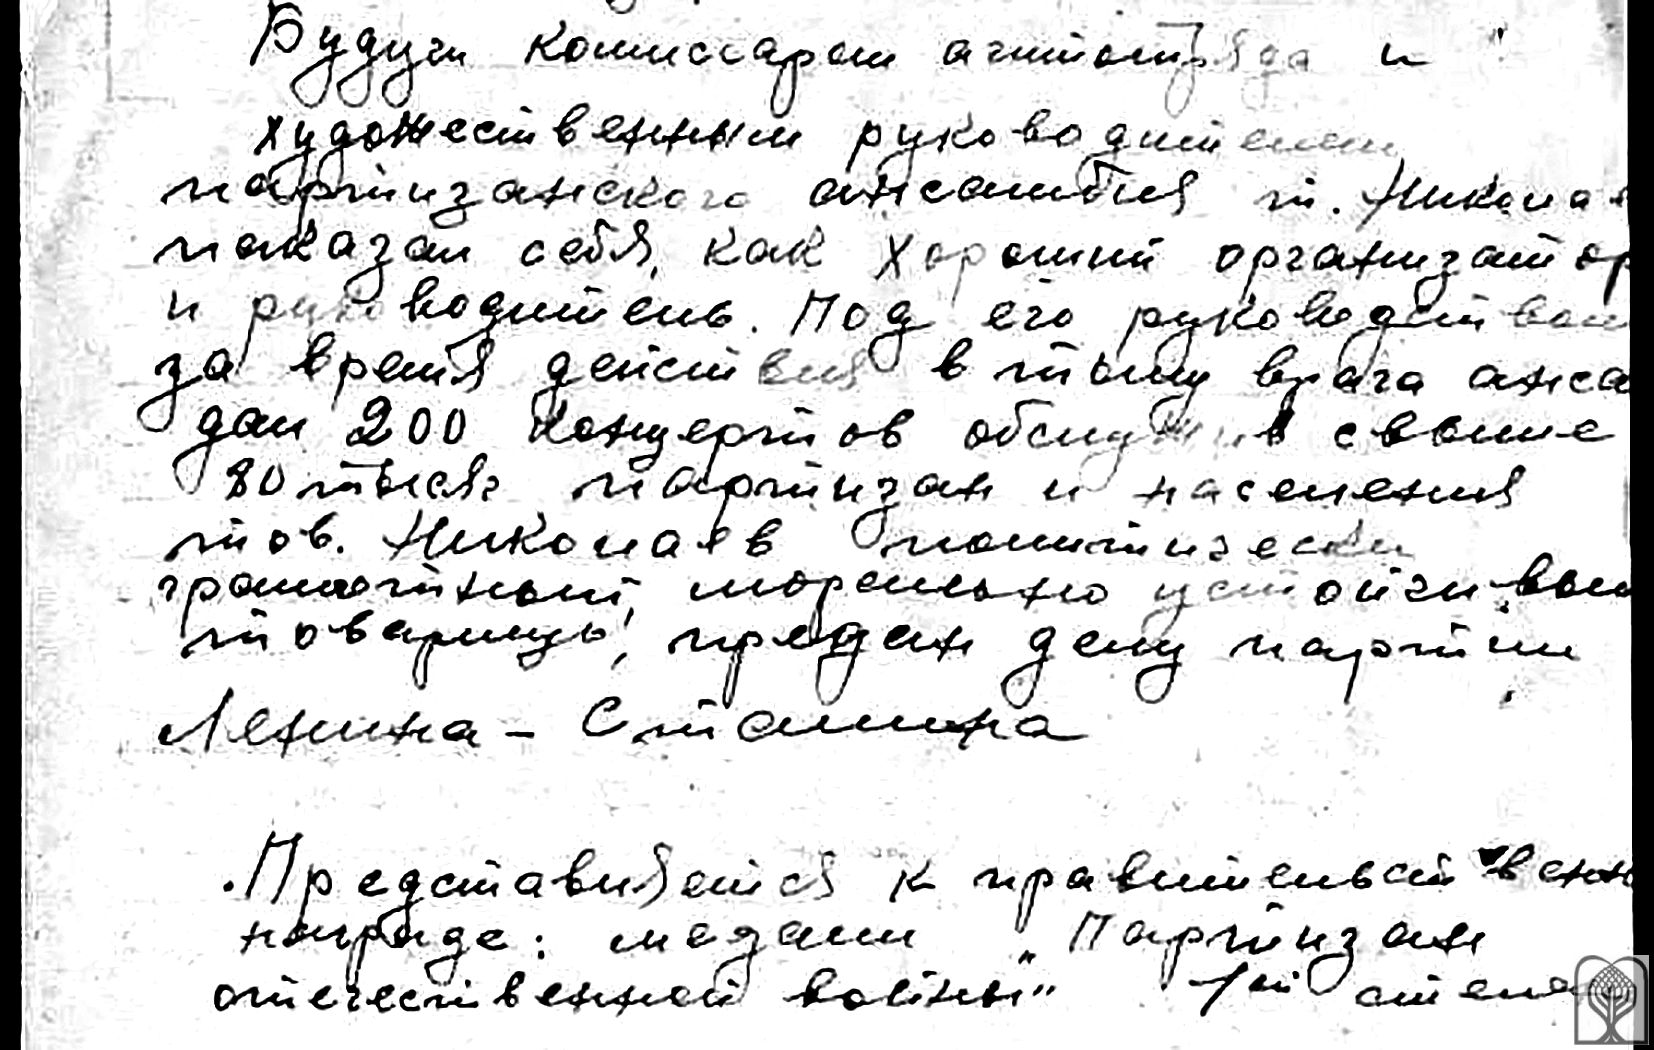 Будучи комиссаром агитотряда и
художественным руководителем
партизанского ансамбля т. Никола
показал себя, как хороший организатор
и руководитель. Под его руководством
за время действия в тылу врага анса
дал 200 концертов обслужив свыше
80 тысяч партизан и населения
тов. Николаев политически
грамотный, морально устойчивый
товарищь, предан делу партии
Ленина - Сталина
Представляется к правительственн
награде: медали „Партизан
отечественной войны" 1ой степе